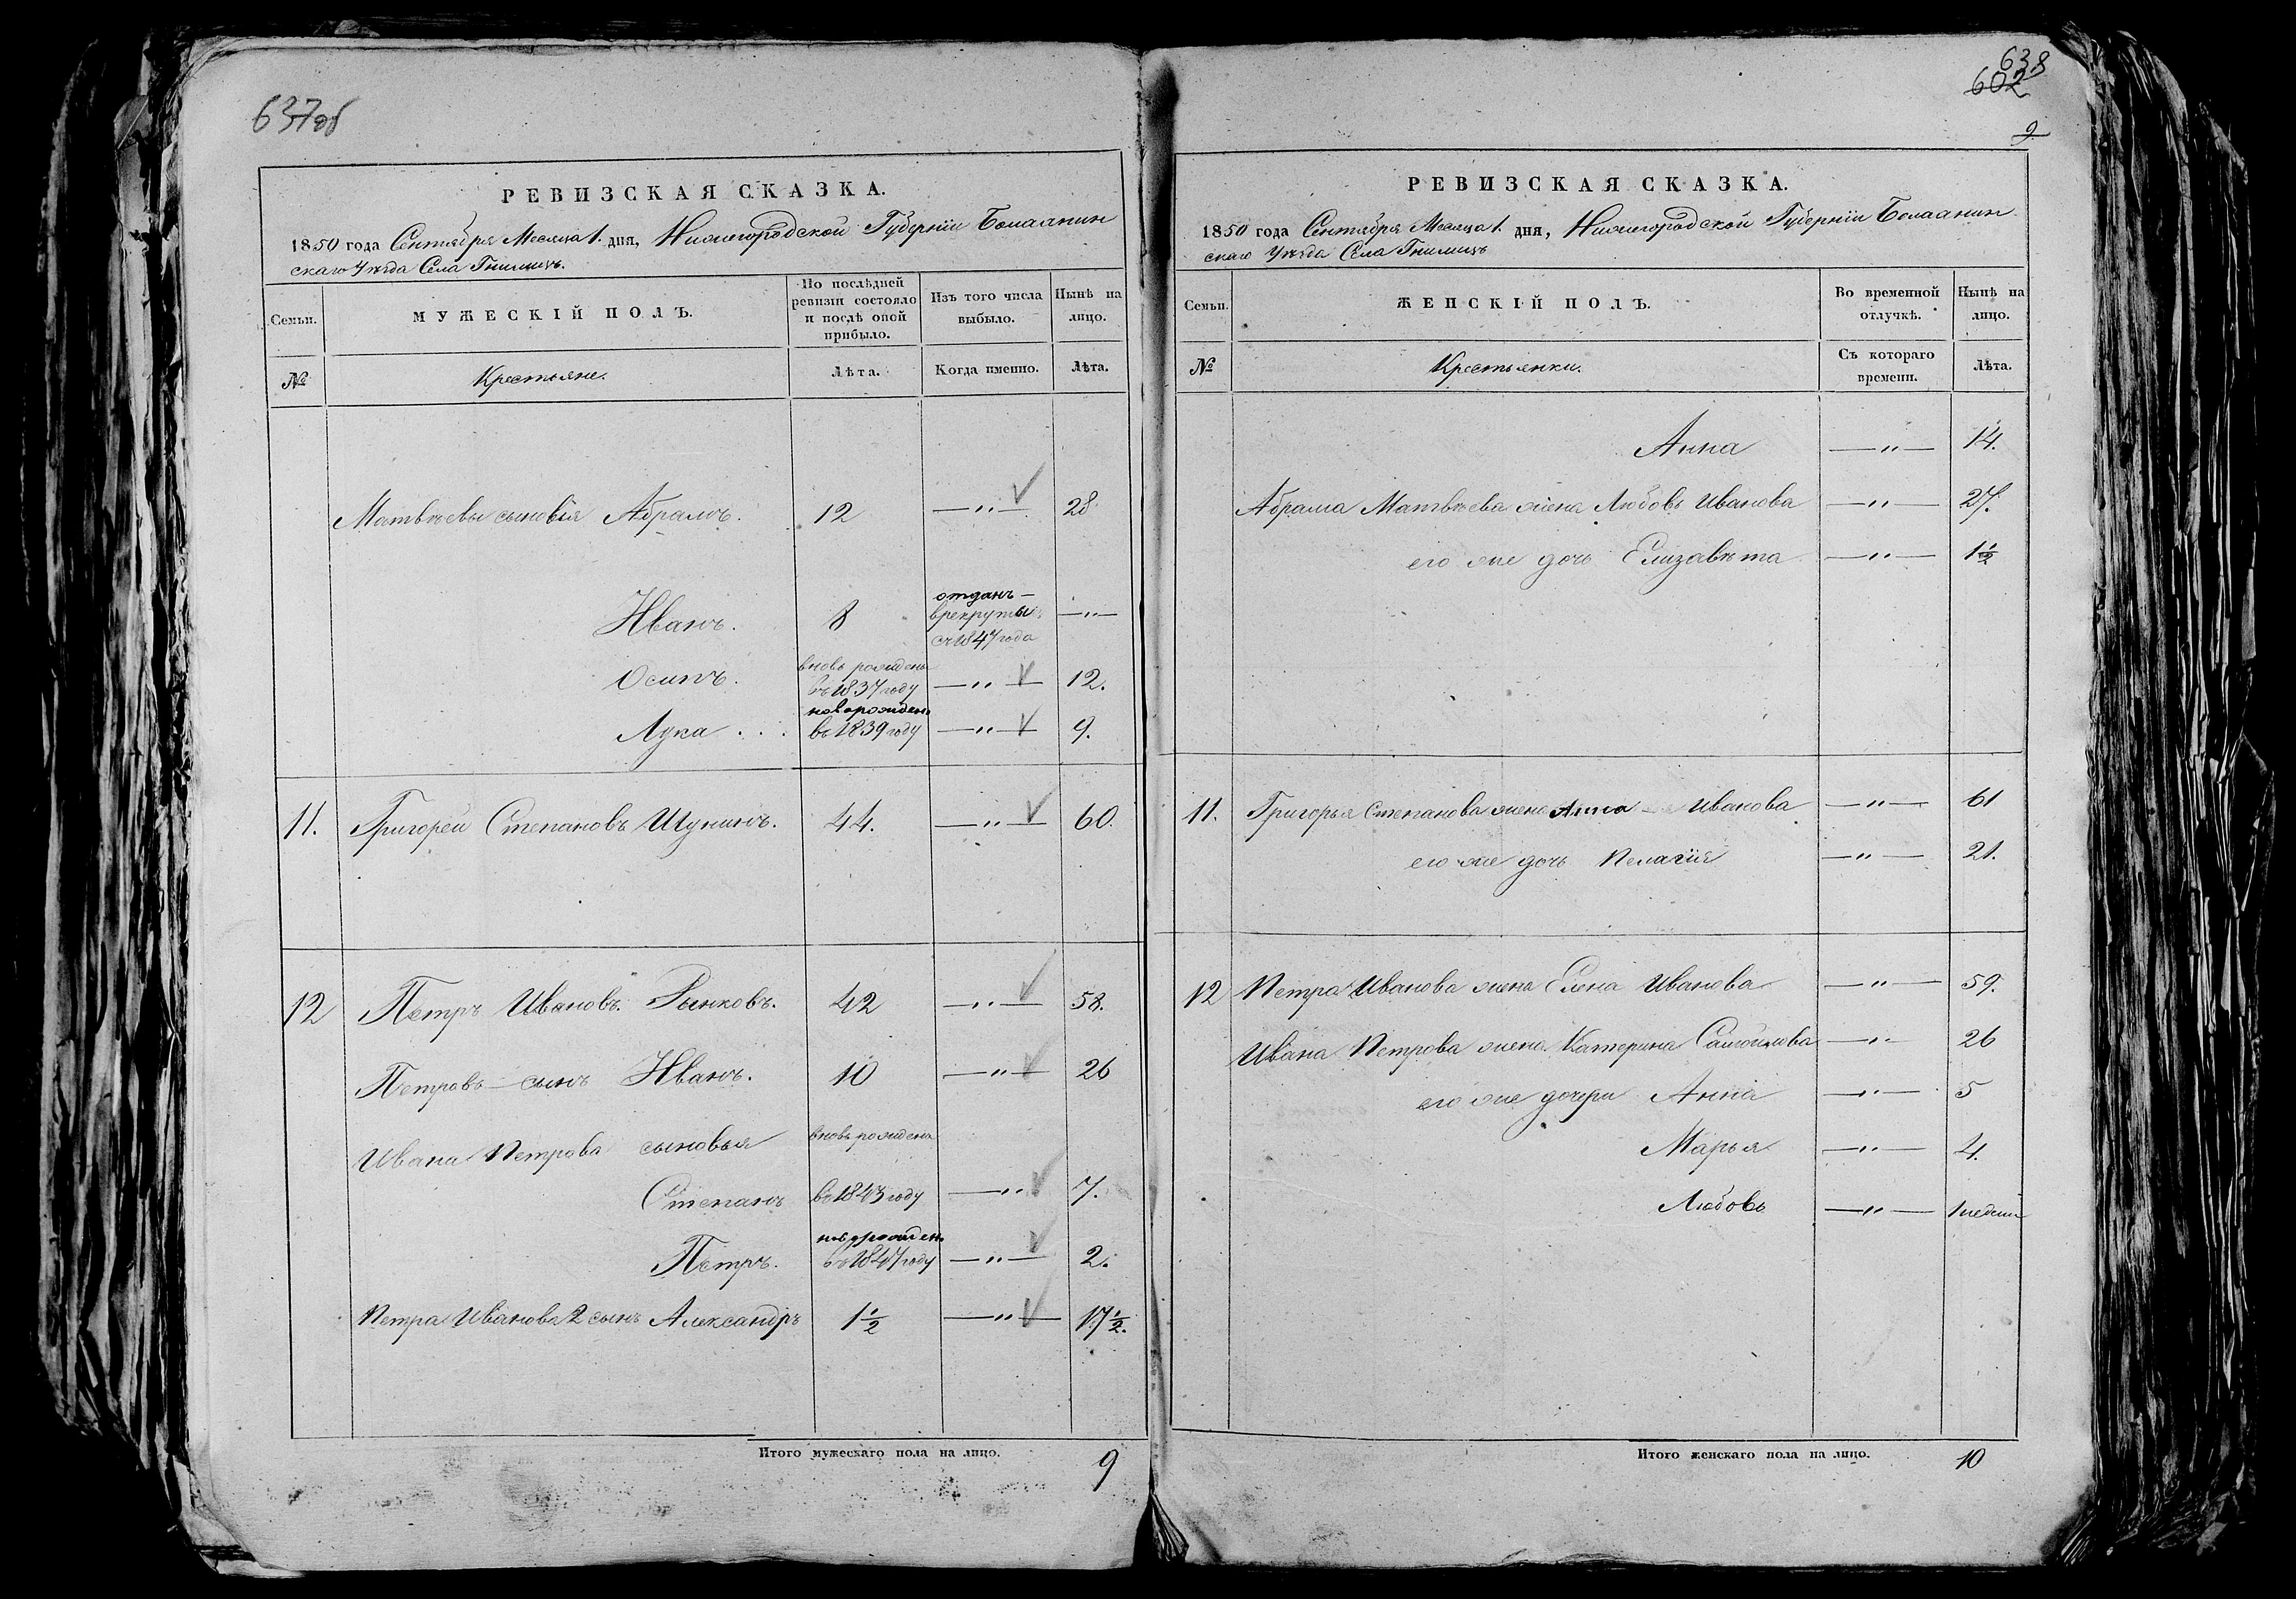 637об
РЕВИЗСКАЯ СКАЗКА.
1850 года Сентября Месяца 1. дня, Нижегородской Губернiи Балахнин
скаго Уѣзда Села Гнилицъ.
Семьи. МУЖЕСКІЙ ПОЛЪ. По послѣдней ревизіи состояло и послѣ оной прибыло. Изъ того числа выбыло. Нынѣ на лицо.
№ Крестьяне. Лѣта. Когда именно. Лѣта.
Матвѣевы сыновья Абрамъ. 12 —„— 28
Иванъ. 8 отданъ в рекруты съ 1847 года —„—
Осипъ. вновь рожденъ въ 1837 году —„— 12.
Лука . . . новорожденъ въ 1839 году —„— 9.
11. Григорей Степановъ Шунинъ. 44. —„— 60.
12 Петръ Ивановъ. Рынковъ. 42 —„— 58.
Петровъ — сынъ Иванъ. 10 —„— 26
Ивана Петрова сыновья вновь рожденъ
Степанъ въ 1843 году —„— 7.
Петръ. новорожден. въ 1847 году —„— 2.
Петра Иванова 2 сынъ Александръ 1½ —„— 17½.
Итого мужескаго пола на лицо. 9
638
602
9
РЕВИЗСКАЯ СКАЗКА.
1850 года Сентября Месяца 1. дня, Нижегородской Губернiи Балахнин
скаго Уѣзда Села Гнилицъ
Семьи. ЖЕНСКІЙ ПОЛЪ. Во временной отлучкѣ. Нынѣ на лицо.
№ Крестьянки. Съ котораго времени. Лѣта.
Анна —„— 14.
Абрама Матвѣева жена Любовь Иванова —„— 27.
его же дочь Елизавѣта —„— 1½
11. Григорья Степанова жена Анна Иванова —„— 61
его же дочь Пелагiя —„— 21.
12 Петра Иванова жена Елена Иванова —„— 59.
Ивана Петрова жена Катерина Самойлова —„— 26
его же дочери Анна —„— 5
Марья —„— 4.
Любовь —„— 1 недели
Итого женскаго пола на лицо. 10